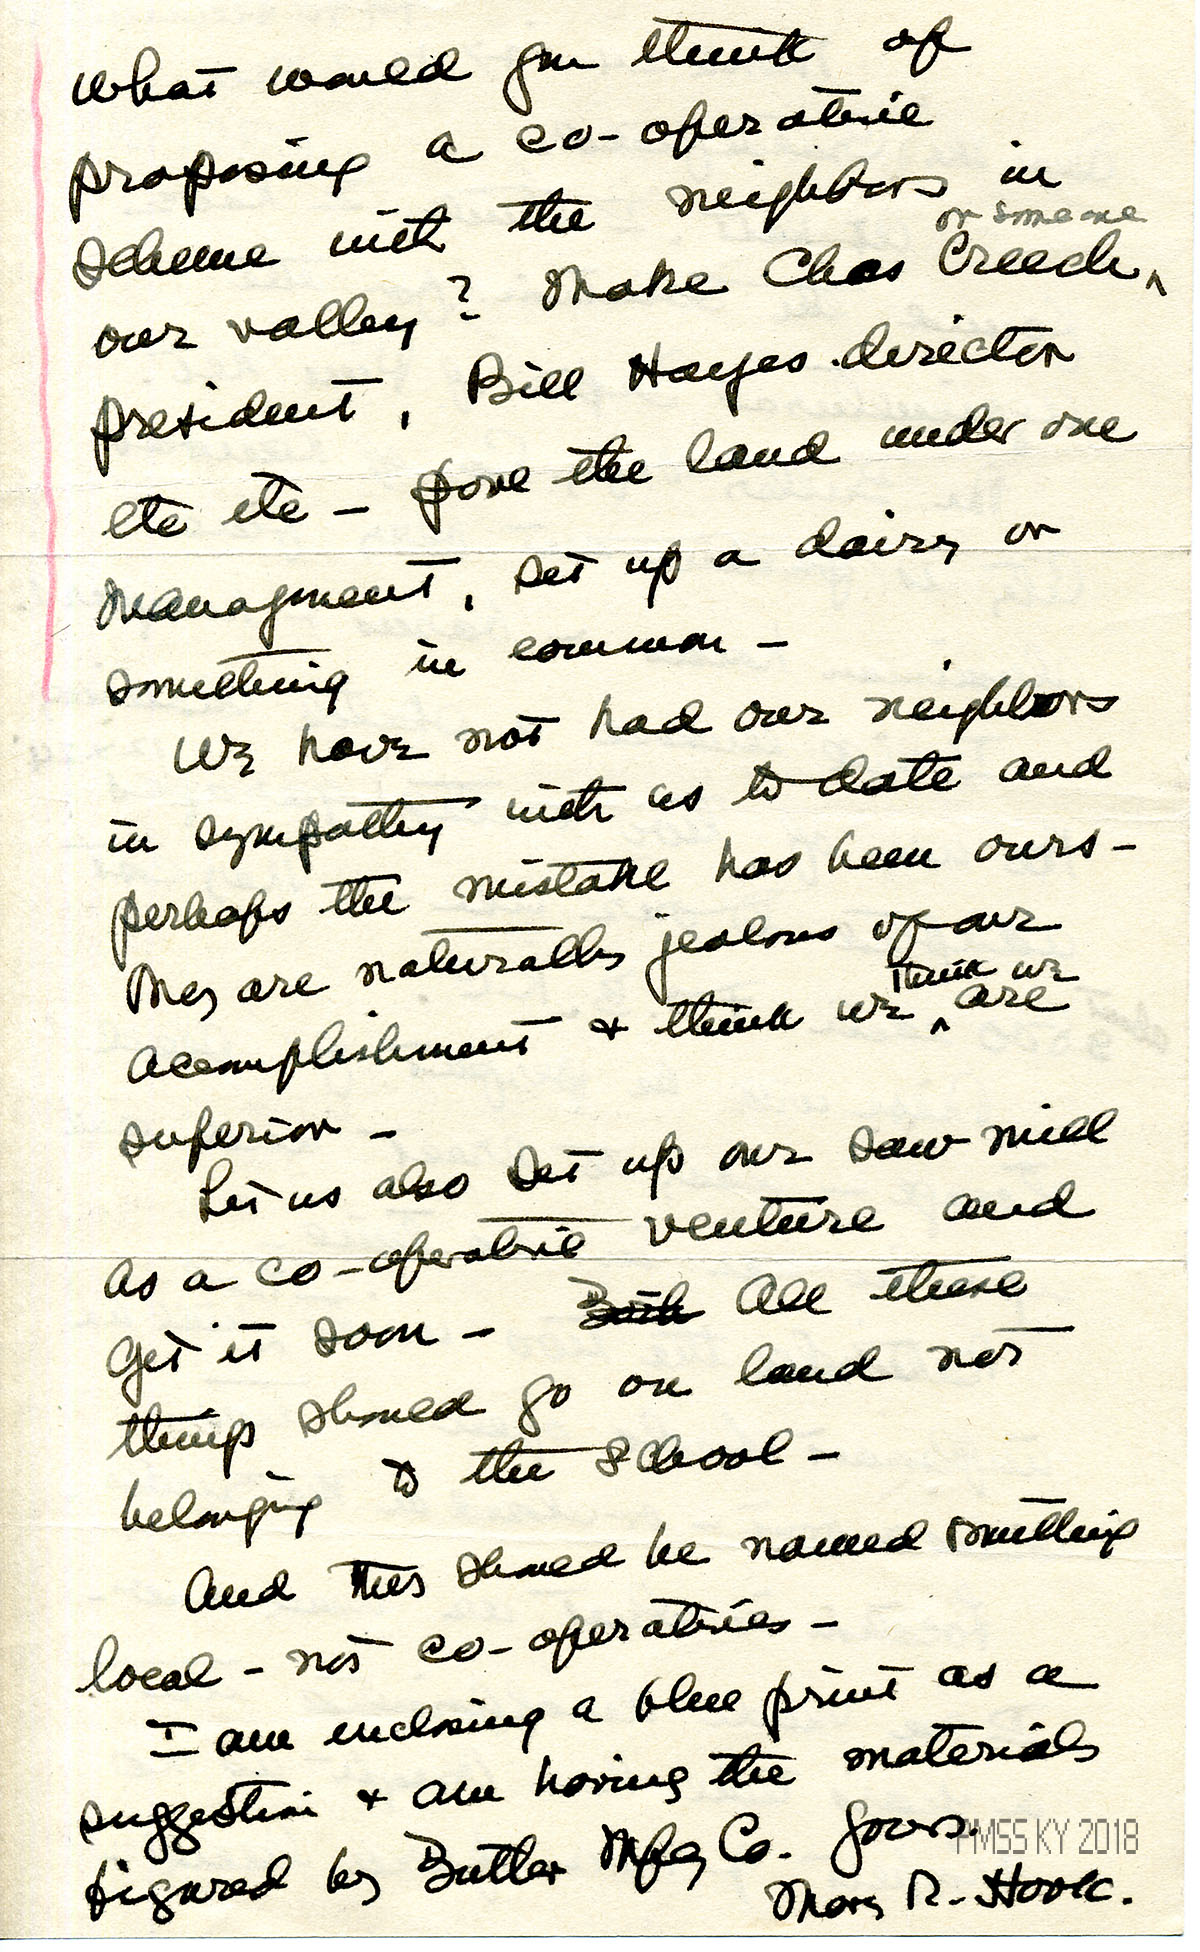 What would you think of
proposing a co-operative
scheme with the neighbors in
or someone
our valley? Make Chas Creech ^
president, Bill Hayes director
etc etc – the land under one
managment, set up a dairy or
something in common –
We have not had our neighbors
in sympathy with us to date and
perhaps the mistake has been ours –
They are naturally jealous of our
think we
accomplishment & think we ^ are
superior –
Let us also set up our saw mill
as a co-operative venture and
get it soon – Both All these
things should go on land not
belonging to the school –
And this should be named something
local – not co-operatives –
I am enclosing a blue print as a
suggestion & am having the materials
figured by Butler Mfg Co. Yours.
PMSS KY 2018
Mary R. Hook.